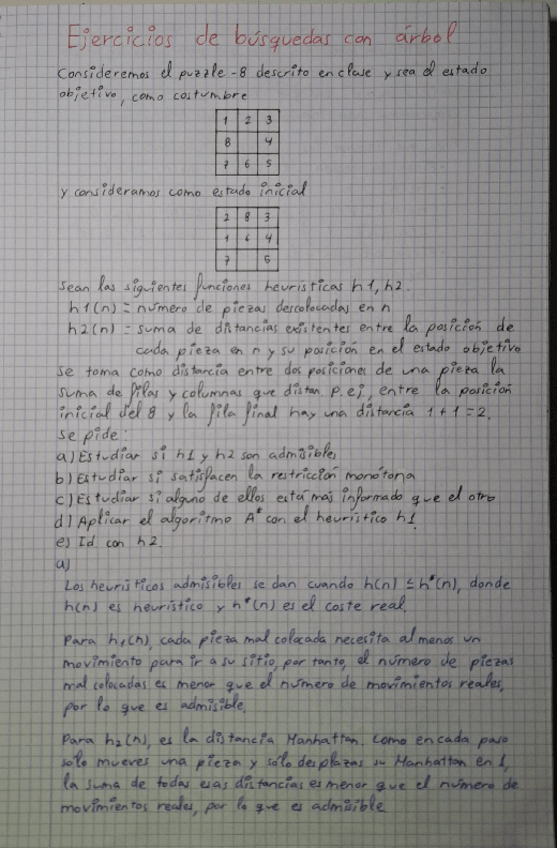 Ejercicios de búsquedas con árbol
Consideremos el puzzle-8 descrito en clase y sea el estado
objetivo, como costumbre
1 2 3
8 4
7 6 5
y consideramos como estado inicial
2 8 3
1 6 4
7 5
Sean las siguientes funciones heurísticas h1, h2.
h1(n) = número de piezas descolocadas en n
h2(n) = suma de distancias existentes entre la posición de
cada pieza en n y su posición en el estado objetivo
se toma como distancia entre dos posiciones de una pieza la
suma de filas y columnas que distan p.ej, entre la posición
inicial del 8 y la fila final hay una distancia 1+1=2.
Se pide:
a) Estudiar si h1 y h2 son admisibles
b) Estudiar si satisfacen la restricción monótona
c) Estudiar si alguno de ellos está más informado que el otro
d) Aplicar el algoritmo A* con el heurístico h1.
e) Id con h2.
a)
Los heurísticos admisibles se dan cuando h(n) ≤ h*(n), donde
h(n) es heurístico y h*(n) es el coste real.
Para h₁(n), cada pieza mal colocada necesita al menos un
movimiento para ir a su sitio, por tanto, el número de piezas
mal colocadas es menor que el número de movimientos reales,
por lo que es admisible.
Para h₂(n), es la distancia Manhattan. Como en cada paso
solo mueves una pieza y sólo desplazas su Manhattan en 1,
la suma de todas esas distancias es menor que el número de
movimientos reales, por lo que es admisible